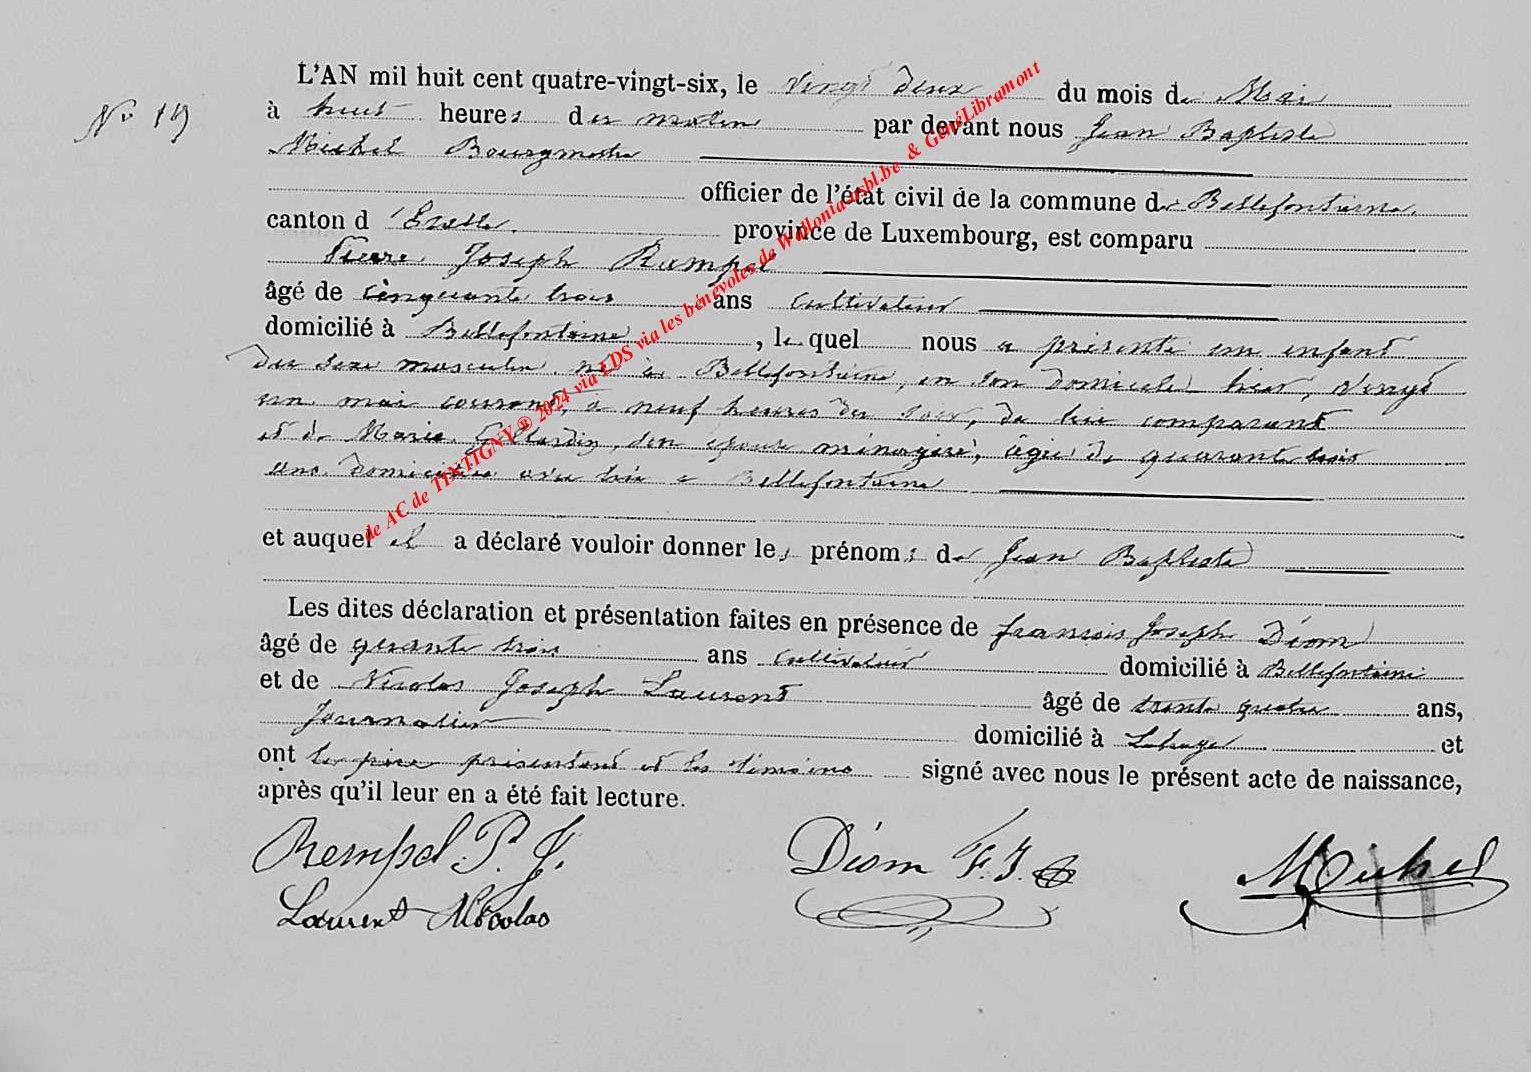 L'AN mil huit cent quatre-vingt-six, le vingt deux du mois de Mai
N° 19
à huit heures du matin par devant nous Jean Baptiste
Michel Bourgmestre
officier de l'état civil de la commune de Bellefontaine,
canton d'Etalle. province de Luxembourg, est comparu
Pierre Joseph Rempel
âgé de cinquante trois ans cultivateur
domicilié à Bellefontaine, le quel nous a présenté un enfant
du sexe masculin né à Bellefontaine, en son domicile hier, vingt
un mai courant, à neuf heures du soir, de lui comparant
et de Marie son épouse ménagère, âgée de quarante trois
ans domiciliée avec lui à Bellefontaine
et auquel il a déclaré vouloir donner les prénoms de Jean Baptiste
Les dites déclaration et présentation faites en présence de françois Joseph Diom
âgé de qurante trois ans cultivateur domicilié à Bellefontaine
et de Nicolas Joseph Laurent âgé de trente quatre ans,
Journalier domicilié à Lahage et
ont le père présentant et les témoins signé avec nous le présent acte de naissance,
après qu'il leur en a été fait lecture.
Rempel P. J.
Diom F. J.
Michel
Laurent Nicolas
de AC de TINTIGNY® 2024 via LDS via les bénévoles de Wallonia asbl.be & GénéLibramont